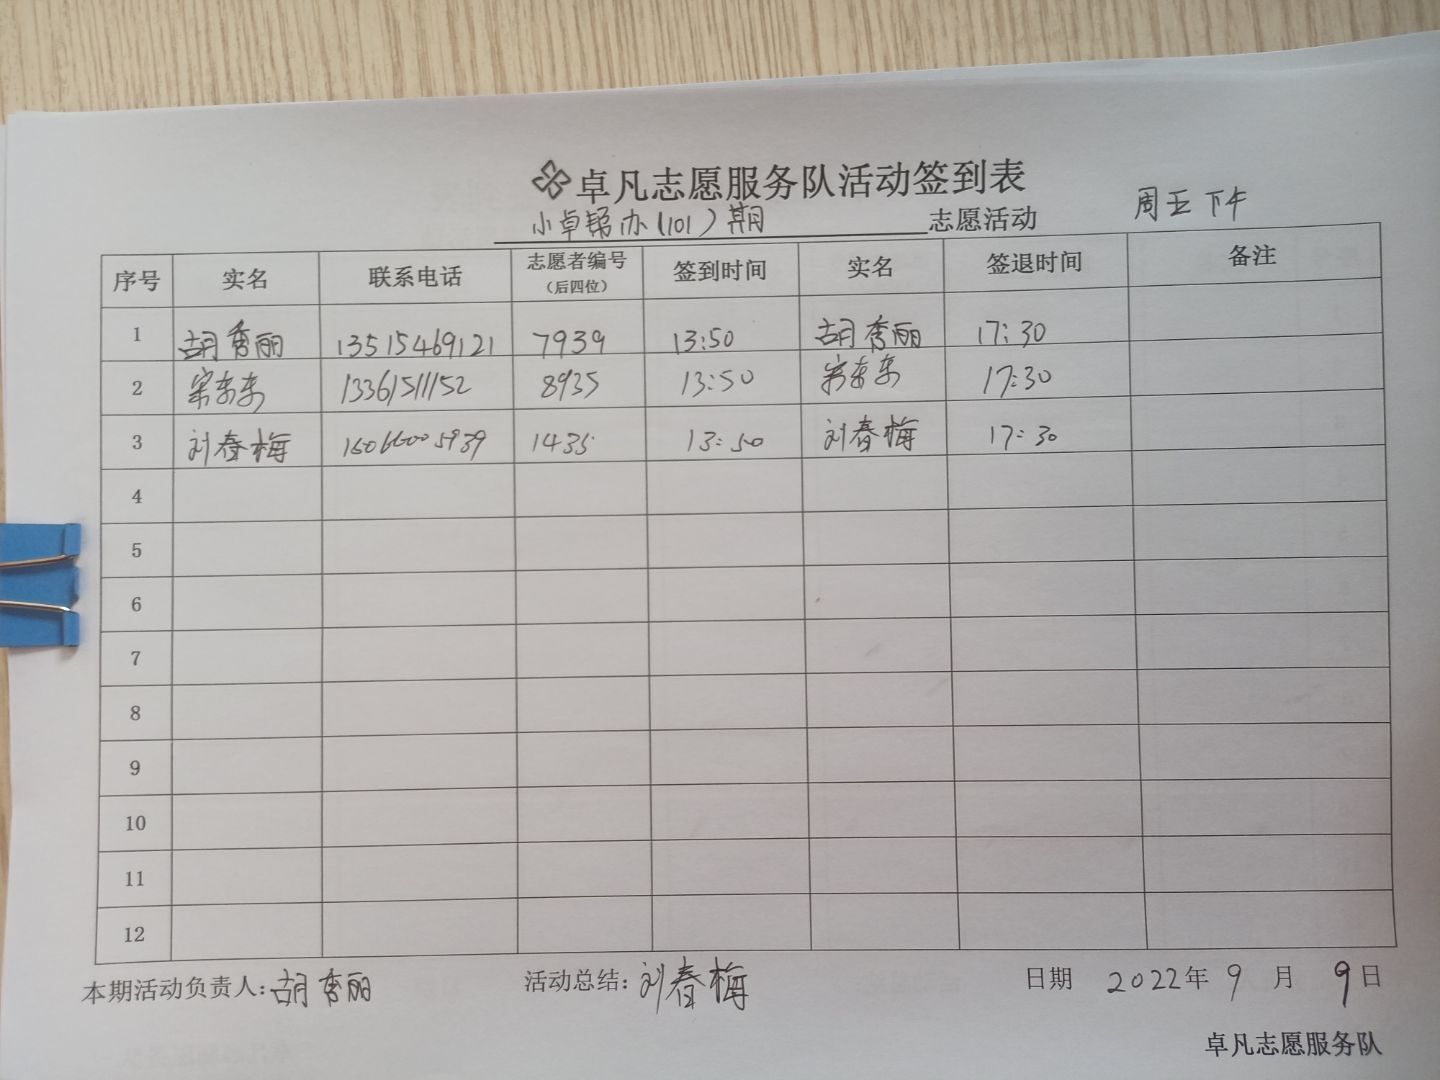 卓凡志愿服务队活动签到表
小卓帮办(101)期 志愿活动 周五下午
序号 实名 联系电话 志愿者编号(后四位) 签到时间 实名 签退时间 备注
1 胡秀丽 13515469121 7939 13:50 胡秀丽 17:30
2 宋东东 13361511152 8935 13:50 宋东东 17:30
3 刘春梅 1435 13:50 刘春梅 17:30
4
5
6
7
8
9
10
11
12
本期活动负责人:胡秀丽 活动总结:刘春梅 日期 2022年9月9日
卓凡志愿服务队